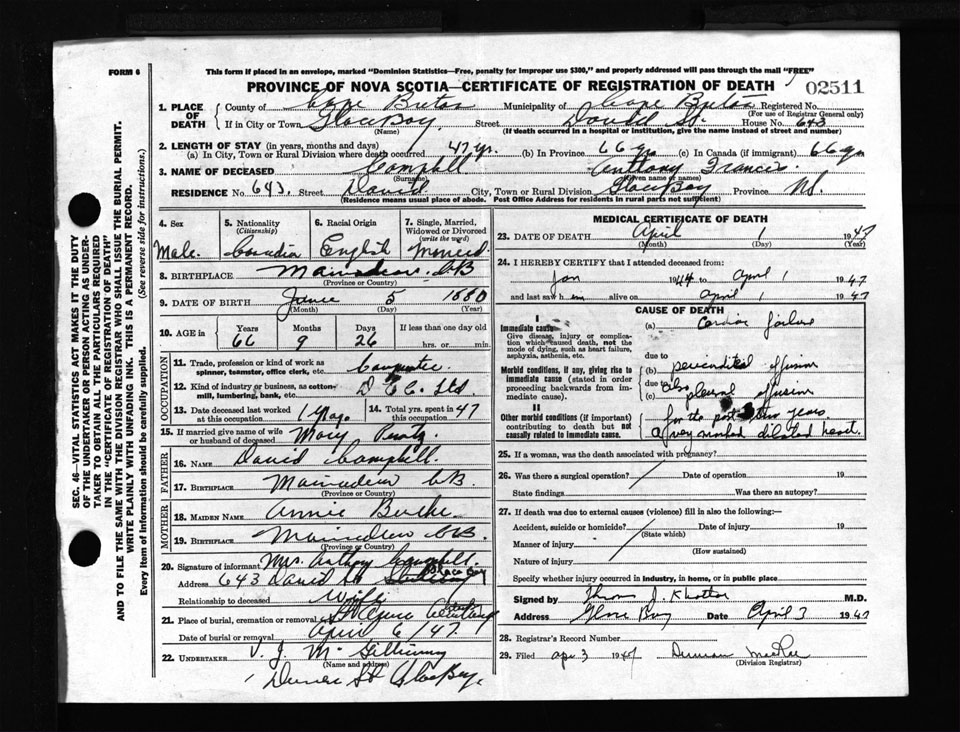 FORM 6
This form if placed in an envelope, marked "Dominion Statistics—Free, penalty for improper use $300," and properly addressed will pass through the mail "FREE"
PROVINCE OF NOVA SCOTIA—CERTIFICATE OF REGISTRATION OF DEATH
02511
1. PLACE OF DEATH County of Cape Breton Municipality of Cape Breton Registered No.
(For use of Registrar General only)
If in City or Town Glace Bay Street David St. House No. 643
(Name) (If death occurred in a hospital or institution, give the name instead of street and number)
2. LENGTH OF STAY (in years, months and days)
(a) In City, Town or Rural Division where death occurred 47 yr. (b) In Province 66 yrs (c) In Canada (if immigrant) 66 yrs
3. NAME OF DECEASED Campbell Anthony Francis
(Surname) (Given name or names)
RESIDENCE No. 643. Street David City, Town or Rural Division Glace Bay Province NS.
(Residence means usual place of abode. Post Office Address for residents in rural parts not sufficient)
4. Sex
Male.
5. Nationality
(Citizenship)
Canadian
6. Racial Origin
English
7. Single, Married, Widowed or Divorced
(write the word)
Married
8. BIRTHPLACE Mainadieu CB
(Province or Country)
9. DATE OF BIRTH June 5 1880
(Month) (Day) (Year)
10. AGE in Years Months Days If less than one day old
66 9 26 hrs. or min.
OCCUPATION
11. Trade, profession or kind of work as spinner, teamster, office clerk, etc. Carpenter
12. Kind of industry or business, as cotton-mill, lumbering, bank, etc. D C C Ltd
13. Date deceased last worked at this occupation 1 yr ago. 14. Total yrs. spent in this occupation 47
15. If married give name of wife or husband of deceased Mary
FATHER
16. NAME David Campbell.
17. BIRTHPLACE Mainadieu CB.
(Province or Country)
MOTHER
18. MAIDEN NAME Annie Burke
19. BIRTHPLACE Mainadieu CB.
(Province or Country)
20. Signature of informant Mrs. Anthony Campbell
Address 643 David St Glace Bay
Relationship to deceased Wife
21. Place of burial, cremation or removal St Anne
Date of burial or removal April 6/47.
22. UNDERTAKER V. J. McGillivray
(Name and address)
St Glace Bay.
MEDICAL CERTIFICATE OF DEATH
23. DATE OF DEATH April 1 1947
(Month) (Day) (Year)
24. I HEREBY CERTIFY that I attended deceased from:
Jan 1944 to April 1 1947
and last saw him alive on April 1 1947
CAUSE OF DEATH
I
Immediate cause
Give disease, injury or complication which caused death, not the mode of dying, such as heart failure, asphyxia, asthenia, etc.
(a) Cardiac failure
due to
Morbid conditions, if any, giving rise to immediate cause (stated in order proceeding backwards from immediate cause).
(b) pericardial effusion
due to also
(c) pleural effusion
II
Other morbid conditions (if important) contributing to death but not causally related to immediate cause.
for the past two years.
a very marked dilated heart.
25. If a woman, was the death associated with pregnancy?
26. Was there a surgical operation? Date of operation 19
State findings Was there an autopsy?
27. If death was due to external causes (violence) fill in also the following:—
Accident, suicide or homicide? Date of injury 19
(State which)
Manner of injury
(How sustained)
Nature of injury
Specify whether injury occurred in industry, in home, or in public place
Signed by J. Khattar M.D.
Address Glace Bay Date April 3 1947
28. Registrar's Record Number
29. Filed Apr 3 1947 Duncan MacRae
(Division Registrar)
SEC. 46—VITAL STATISTICS ACT MAKES IT THE DUTY
OF THE UNDERTAKER OR PERSON ACTING AS UNDER-
TAKER TO OBTAIN ALL THE PARTICULARS REQUIRED
IN THE "CERTIFICATE OF REGISTRATION OF DEATH"
AND TO FILE THE SAME WITH THE DIVISION REGISTRAR WHO SHALL ISSUE THE BURIAL PERMIT.
WRITE PLAINLY WITH UNFADING INK. THIS IS A PERMANENT RECORD.
Every item of information should be carefully supplied. (See reverse side for instructions.)